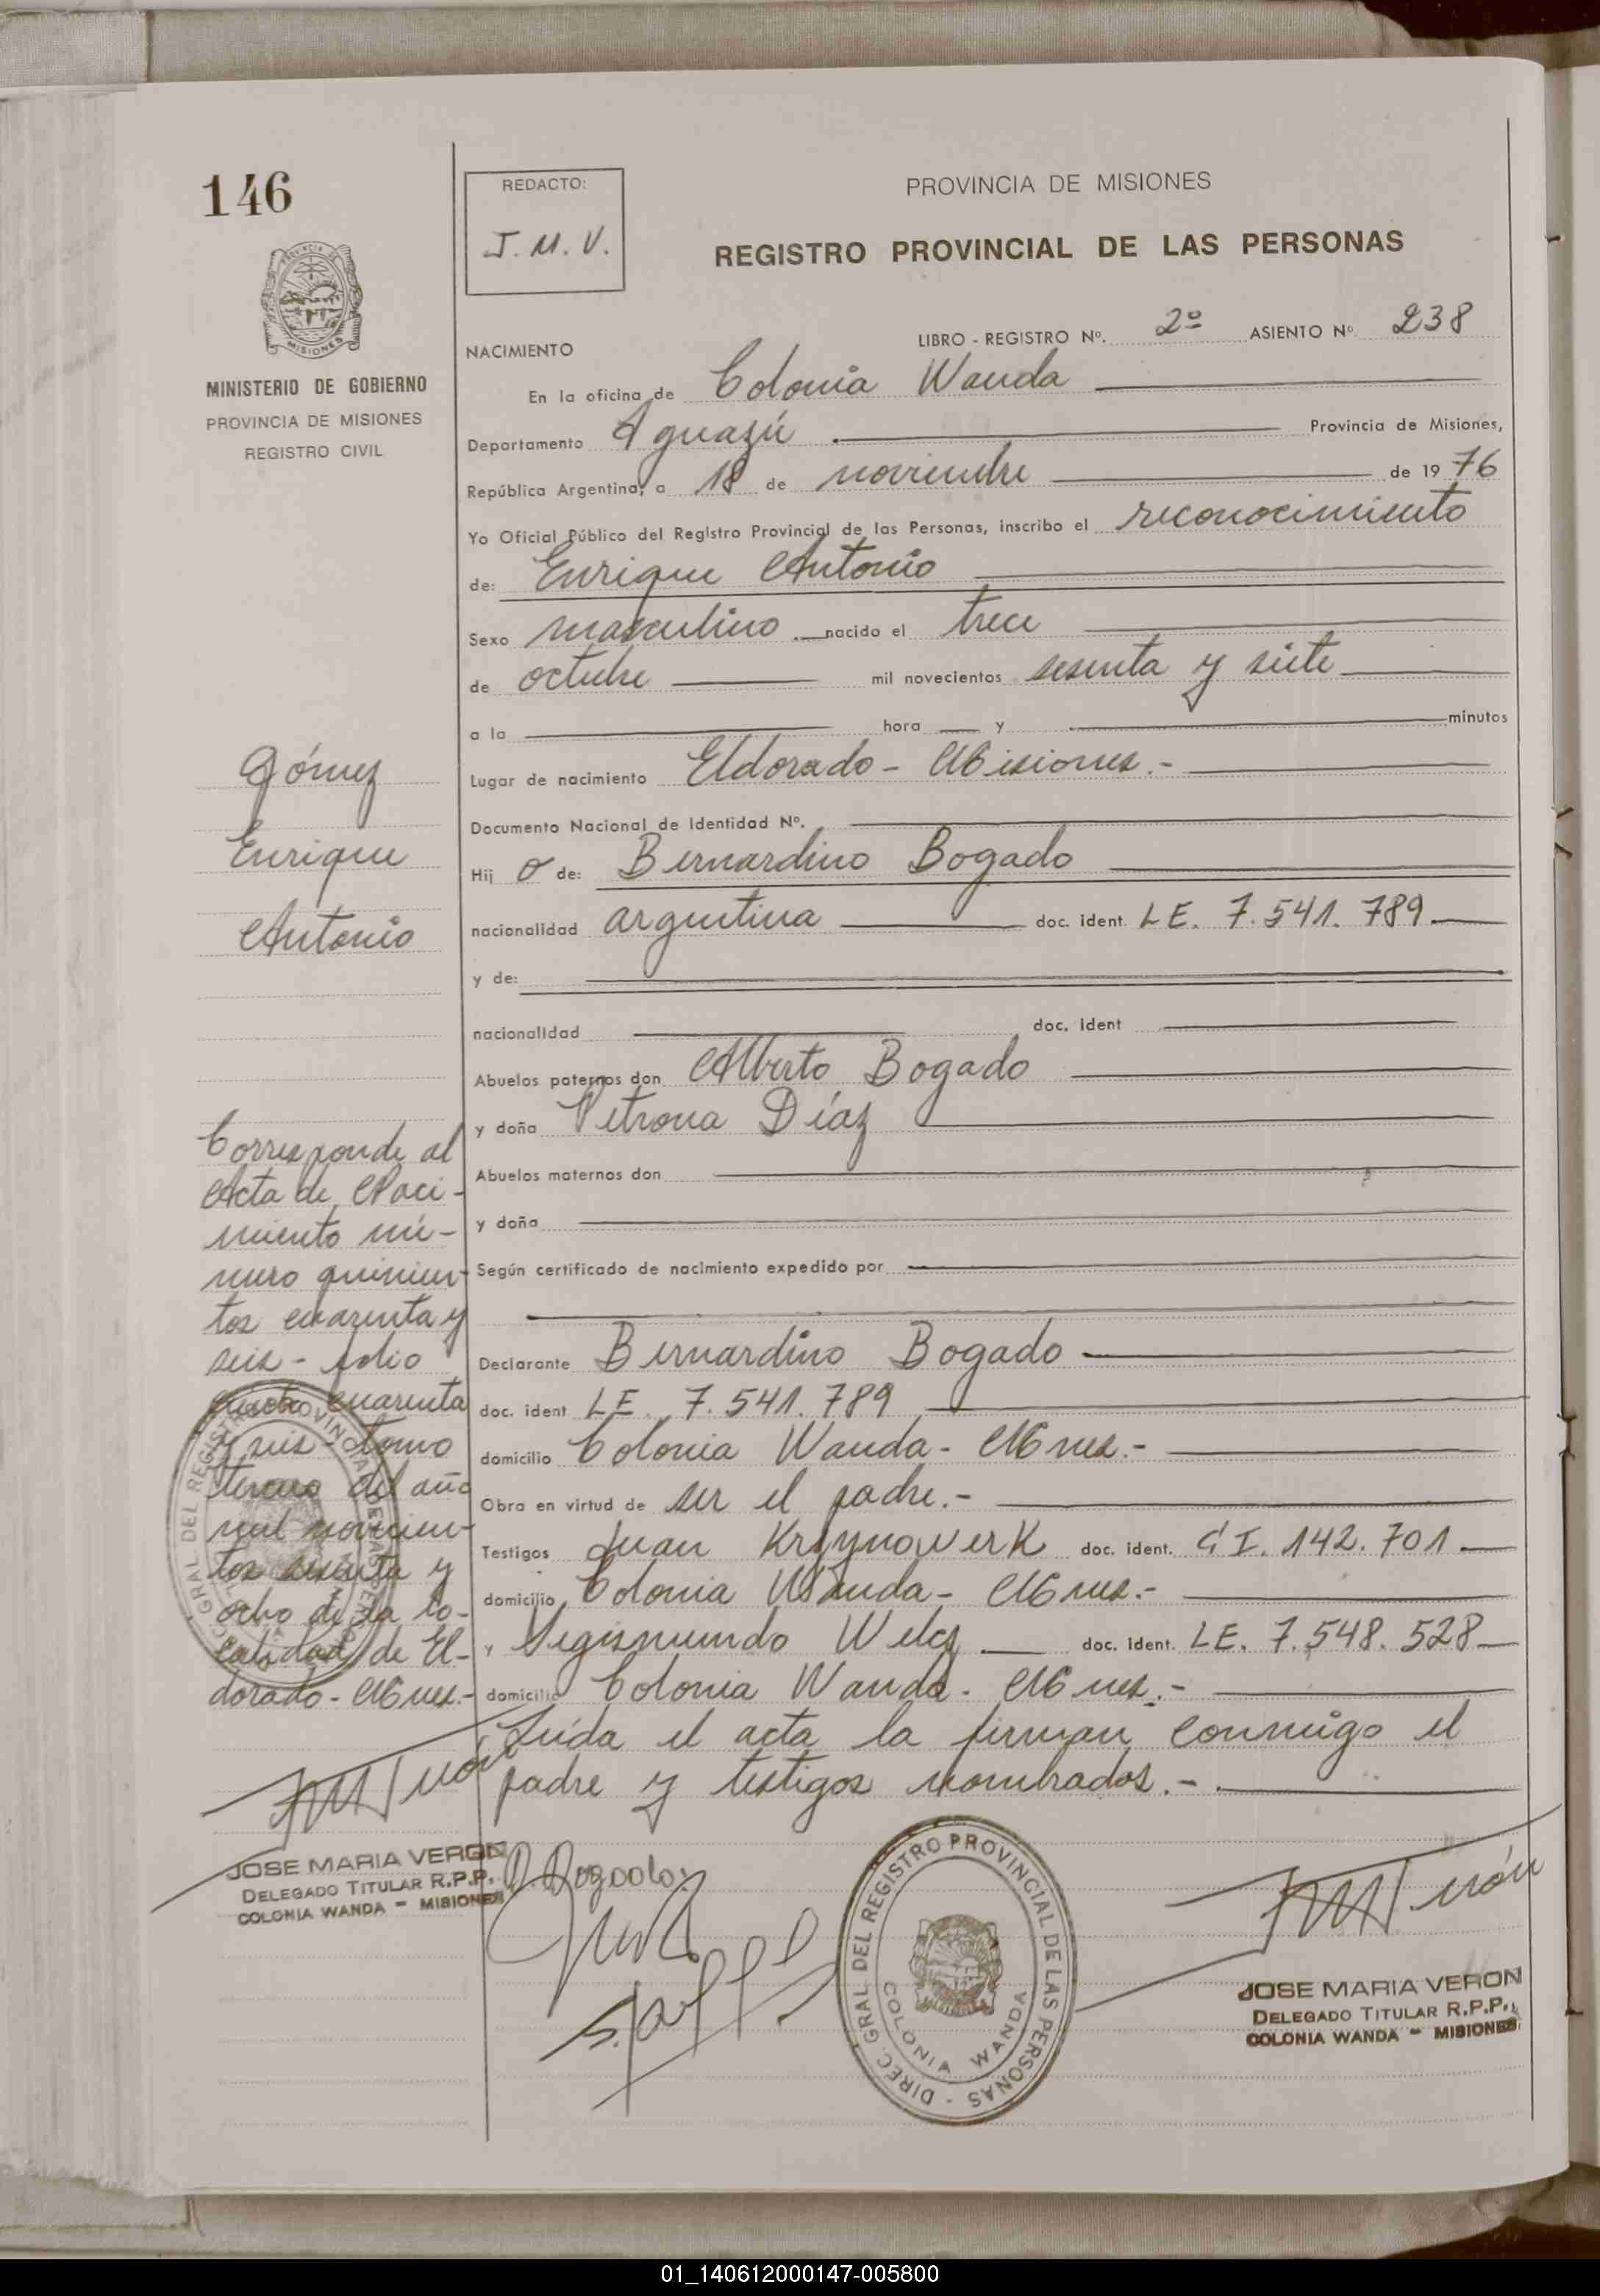 146
MINISTERIO DE GOBIERNO
PROVINCIA DE MISIONES
REGISTRO CIVIL
REDACTO:
J. M. V.
PROVINCIA DE MISIONES
REGISTRO PROVINCIAL DE LAS PERSONAS
LIBRO - REGISTRO Nº. 2º ASIENTO Nº 238
NACIMIENTO
En la oficina de Colonia Wanda
Departamento Iguazú Provincia de Misiones,
República Argentina, a 18 de noviembre de 1976
Yo Oficial Público del Registro Provincial de las Personas, inscribo el reconocimiento
de: Enrique Antonio
Sexo masculino nacido el trece
de octubre mil novecientos sesenta y siete
a la hora y minutos
Lugar de nacimiento Eldorado - Misiones.-
Documento Nacional de Identidad Nº.
Hij o de: Bernardino Bogado
nacionalidad argentina doc. ident. LE. 7.541.789
y de:
nacionalidad doc. ident
Abuelos paternos don Alberto Bogado
y doña Petrona Díaz
Abuelos maternos don
y doña
Según certificado de nacimiento expedido por
Declarante Bernardino Bogado
doc. ident LE. 7.541.789
domicilio Colonia Wanda - Mnes.-
Obra en virtud de ser el padre.-
Testigos Juan doc. ident. C I. 142.701
domicilio Colonia Wanda - Mnes.-
y Segismundo doc. ident. LE. 7.548.528
domicilio Colonia Wanda - Mnes.-
Leída el acta la firman conmigo el
padre y testigos nombrados.-
Gómez
Enrique
Antonio
Corresponde al
Acta de Naci-
miento nú-
mero quinien-
tos cuarenta y
seis - folio
cuarenta
y seis - tomo
tercero del año
mil novecien-
tos sesenta y
ocho de la lo-
calidad de El-
dorado - Mnes.-
JOSE MARIA VERON
DELEGADO TITULAR R.P.P.
COLONIA WANDA - MISIONES
B. Bogado
DIREC. GRAL DEL REGISTRO PROVINCIAL DE LAS PERSONAS -
COLONIA WANDA
JOSE MARIA VERON
DELEGADO TITULAR R.P.P.
COLONIA WANDA - MISIONES
01_140612000147-005800